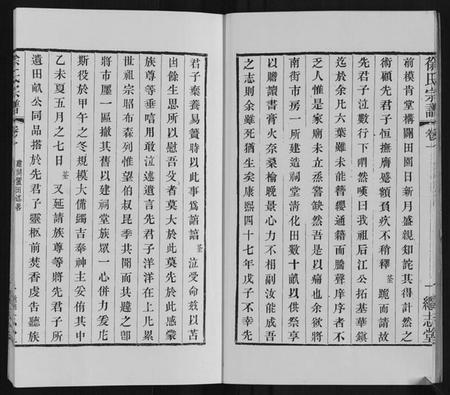 徐氏宗譜 卷一
繼志堂
前模肯堂構闢田園日新月盛親知詫其得計然之
術顧先君子恒撫膺蹙額負疚不稍釋荃跪而請故
先君子泣數行下喟然嘆曰我祖后江公拓基華鎭
迄於余凡六葉雖未能簪纓通籍而騰聲庠序者不
乏人惟是家廟未立烝嘗缺然吾是以痛也余欲將
南街市房一所建造祠堂清化田數十畝以供祭享
以贍讀書膏火奈桑榆晚景心力不相副汝能成吾
之志則余雖死猶生矣康熙四十七年戊子不幸先
君子棄養易簀時以此事爲諄諄荃泣受命敎以苫
凷餘生思所以慰吾父者莫大於此莫先於此感蒙
族尊等垂唁用敢泣述遺言先君子洋洋在上凡累
世祖宗昭布森列惟望伯叔昆季共聞而共趣之卽
將市廛一區撤其舊以建祠堂族眾一心併力矢庀
斯役於甲午之冬規模大備蠲吉奉神主妥侑其中
乙未夏五月之七日荃又延請族尊等將先君子所
遺田畝公同品搭於先君子靈柩前焚香虔吿聽族
徐氏宗譜 卷一